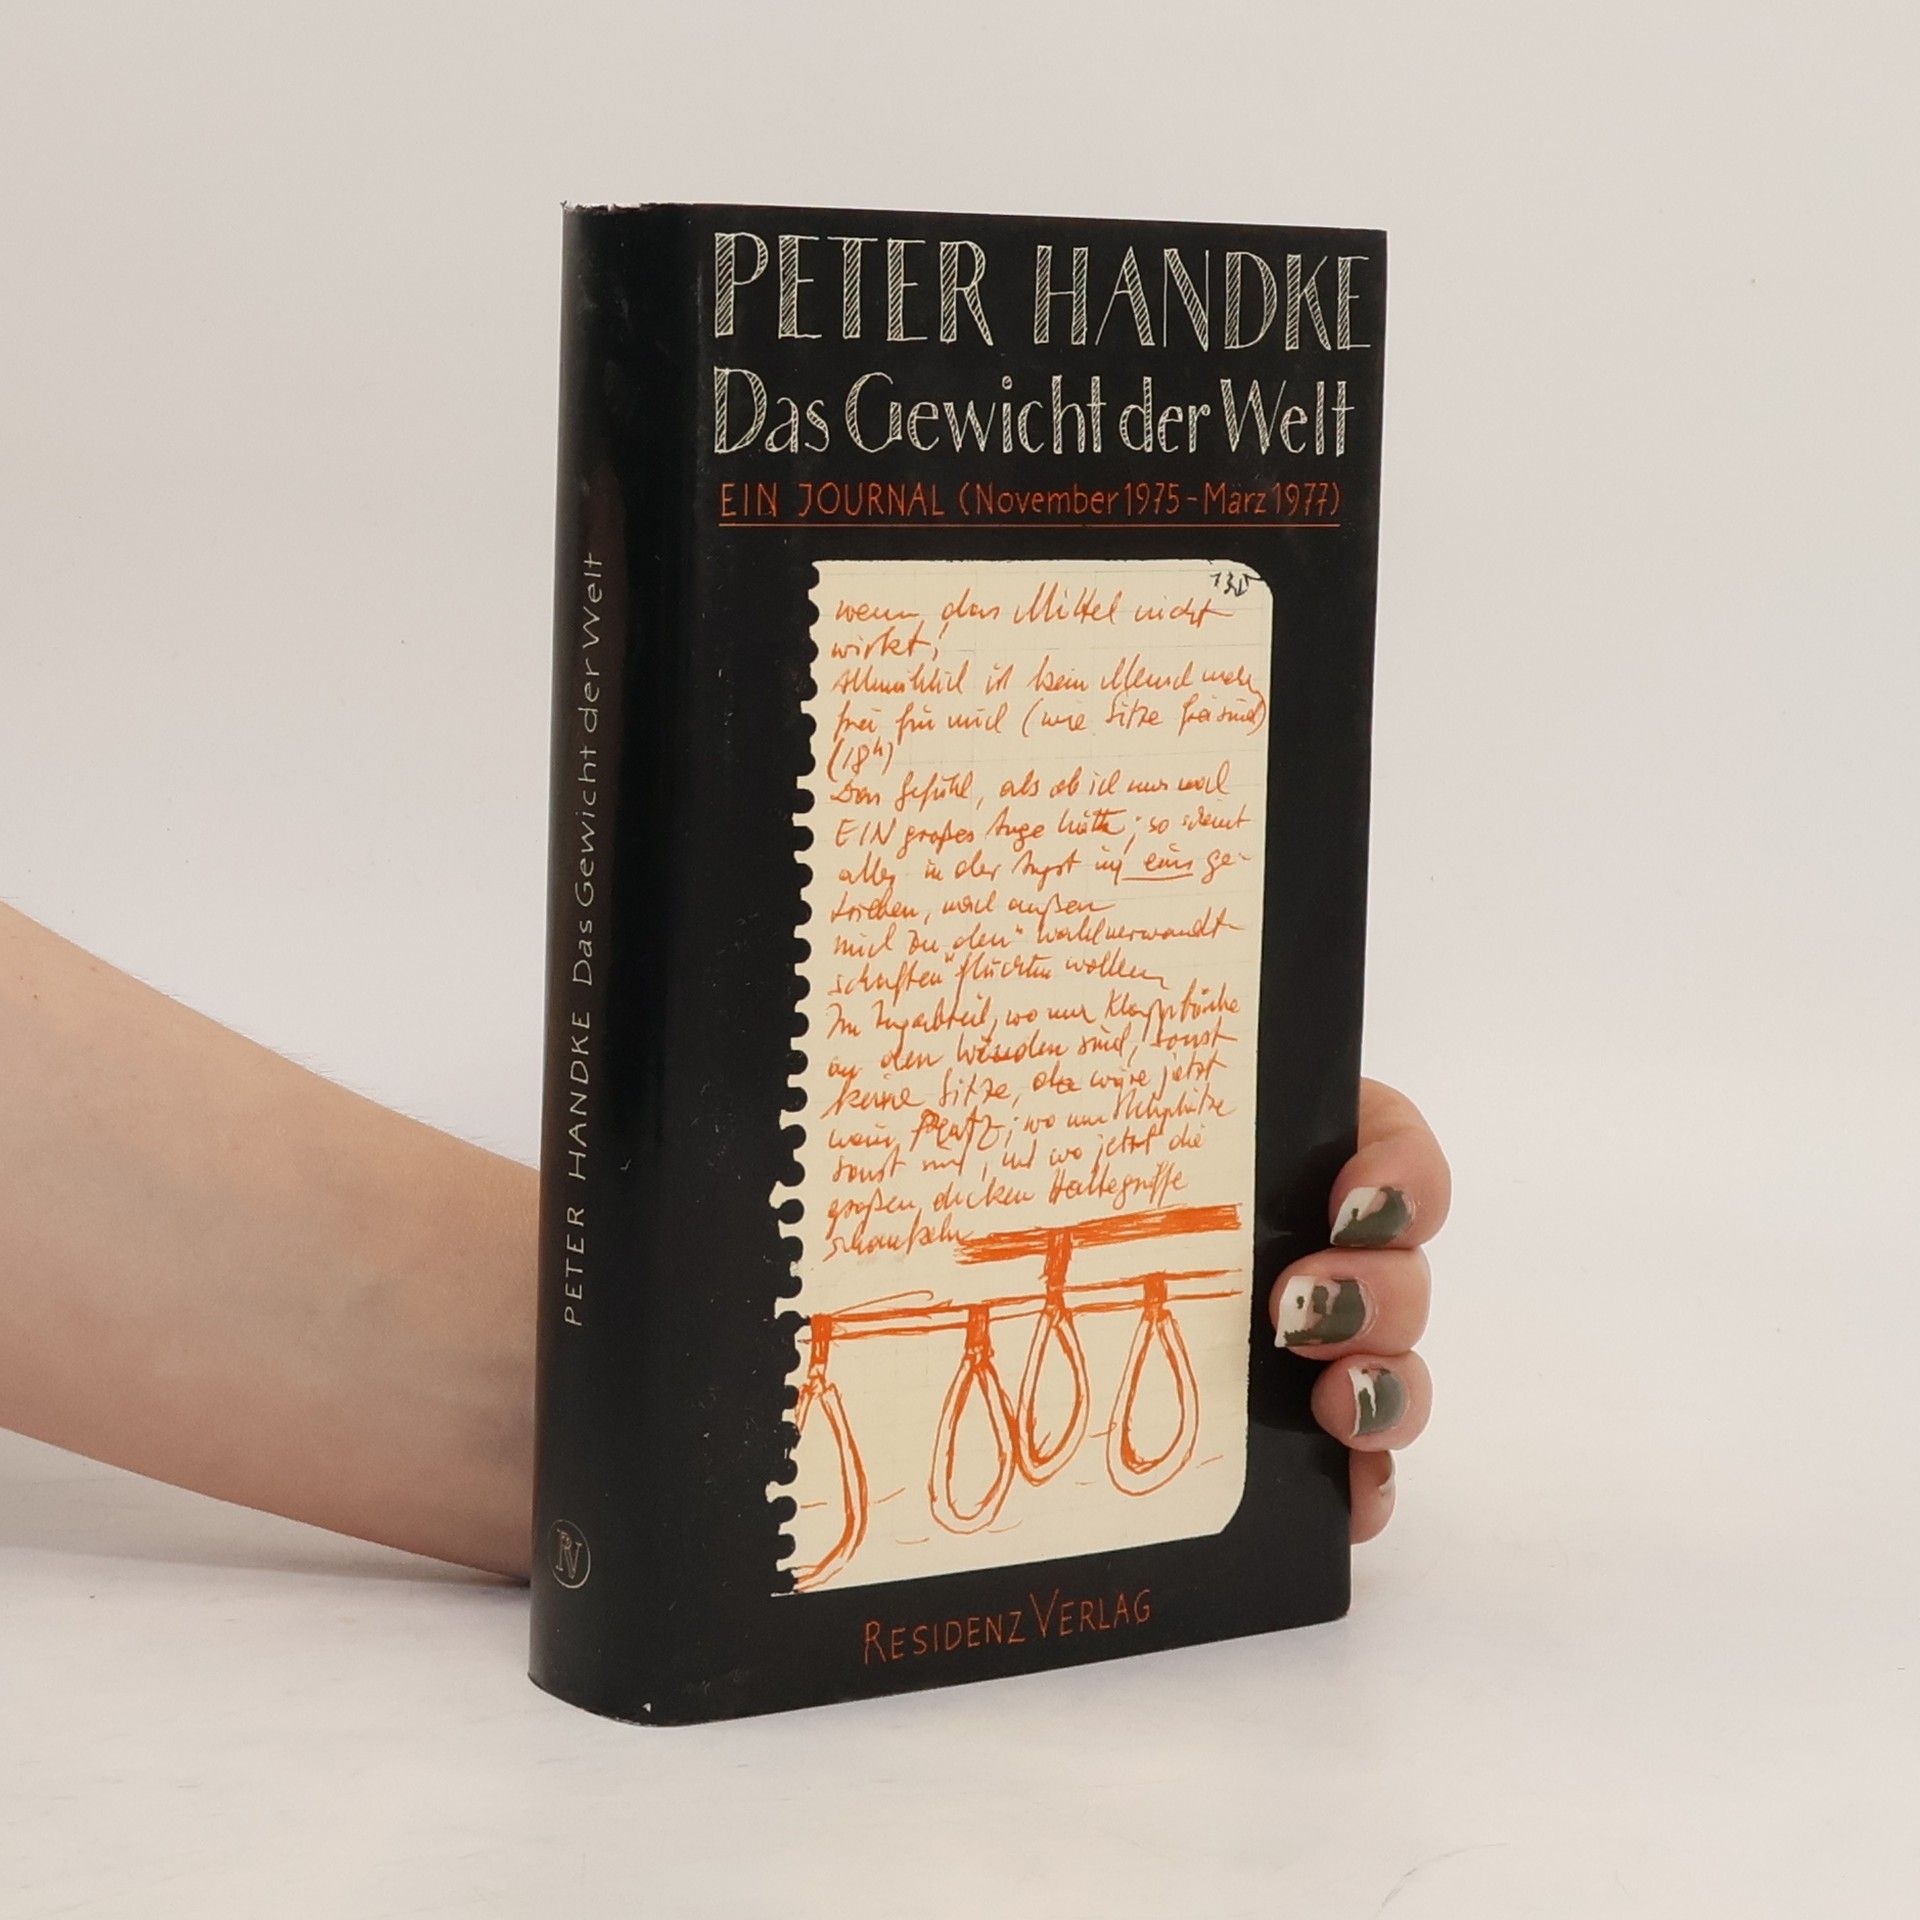 PETER HANDKE
Das Gewicht der Welt
EIN JOURNAL (November 1975 - März 1977)
wenn das Mittel nicht
wirkt!
Allmählich ist kein Mensch mehr
frei für mich (wie Sitze frei sind)
(18h)
Das Gefühl, als ob ich nur noch
EIN großes Auge hätte; so scheint
alles in der Angst in eins ge-
trieben, nach außen
mich zu den "Wahlverwandt-
schaften" flüchten wollen
Im Zugabteil, wo nur Klappbänke
an den Wänden sind, sonst
keine Sitze, da wäre jetzt
mein Platz; wo nur Stehplätze
sonst sind, und wo jetzt die
großen dicken Haltegriffe
schaukeln
RESIDENZ VERLAG
PETER HANDKE Das Gewicht der Welt
RV